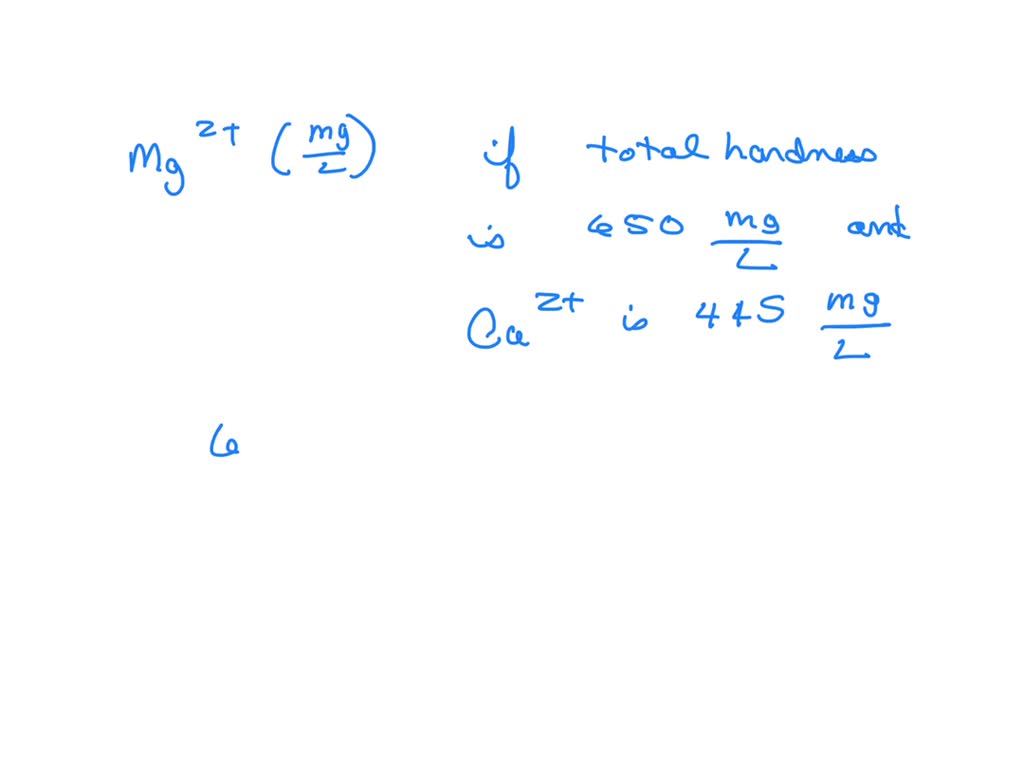 Mg²⁺ (mg/L) if total hardness
is 650 mg/L and
Ca²⁺ is 445 mg/L
6